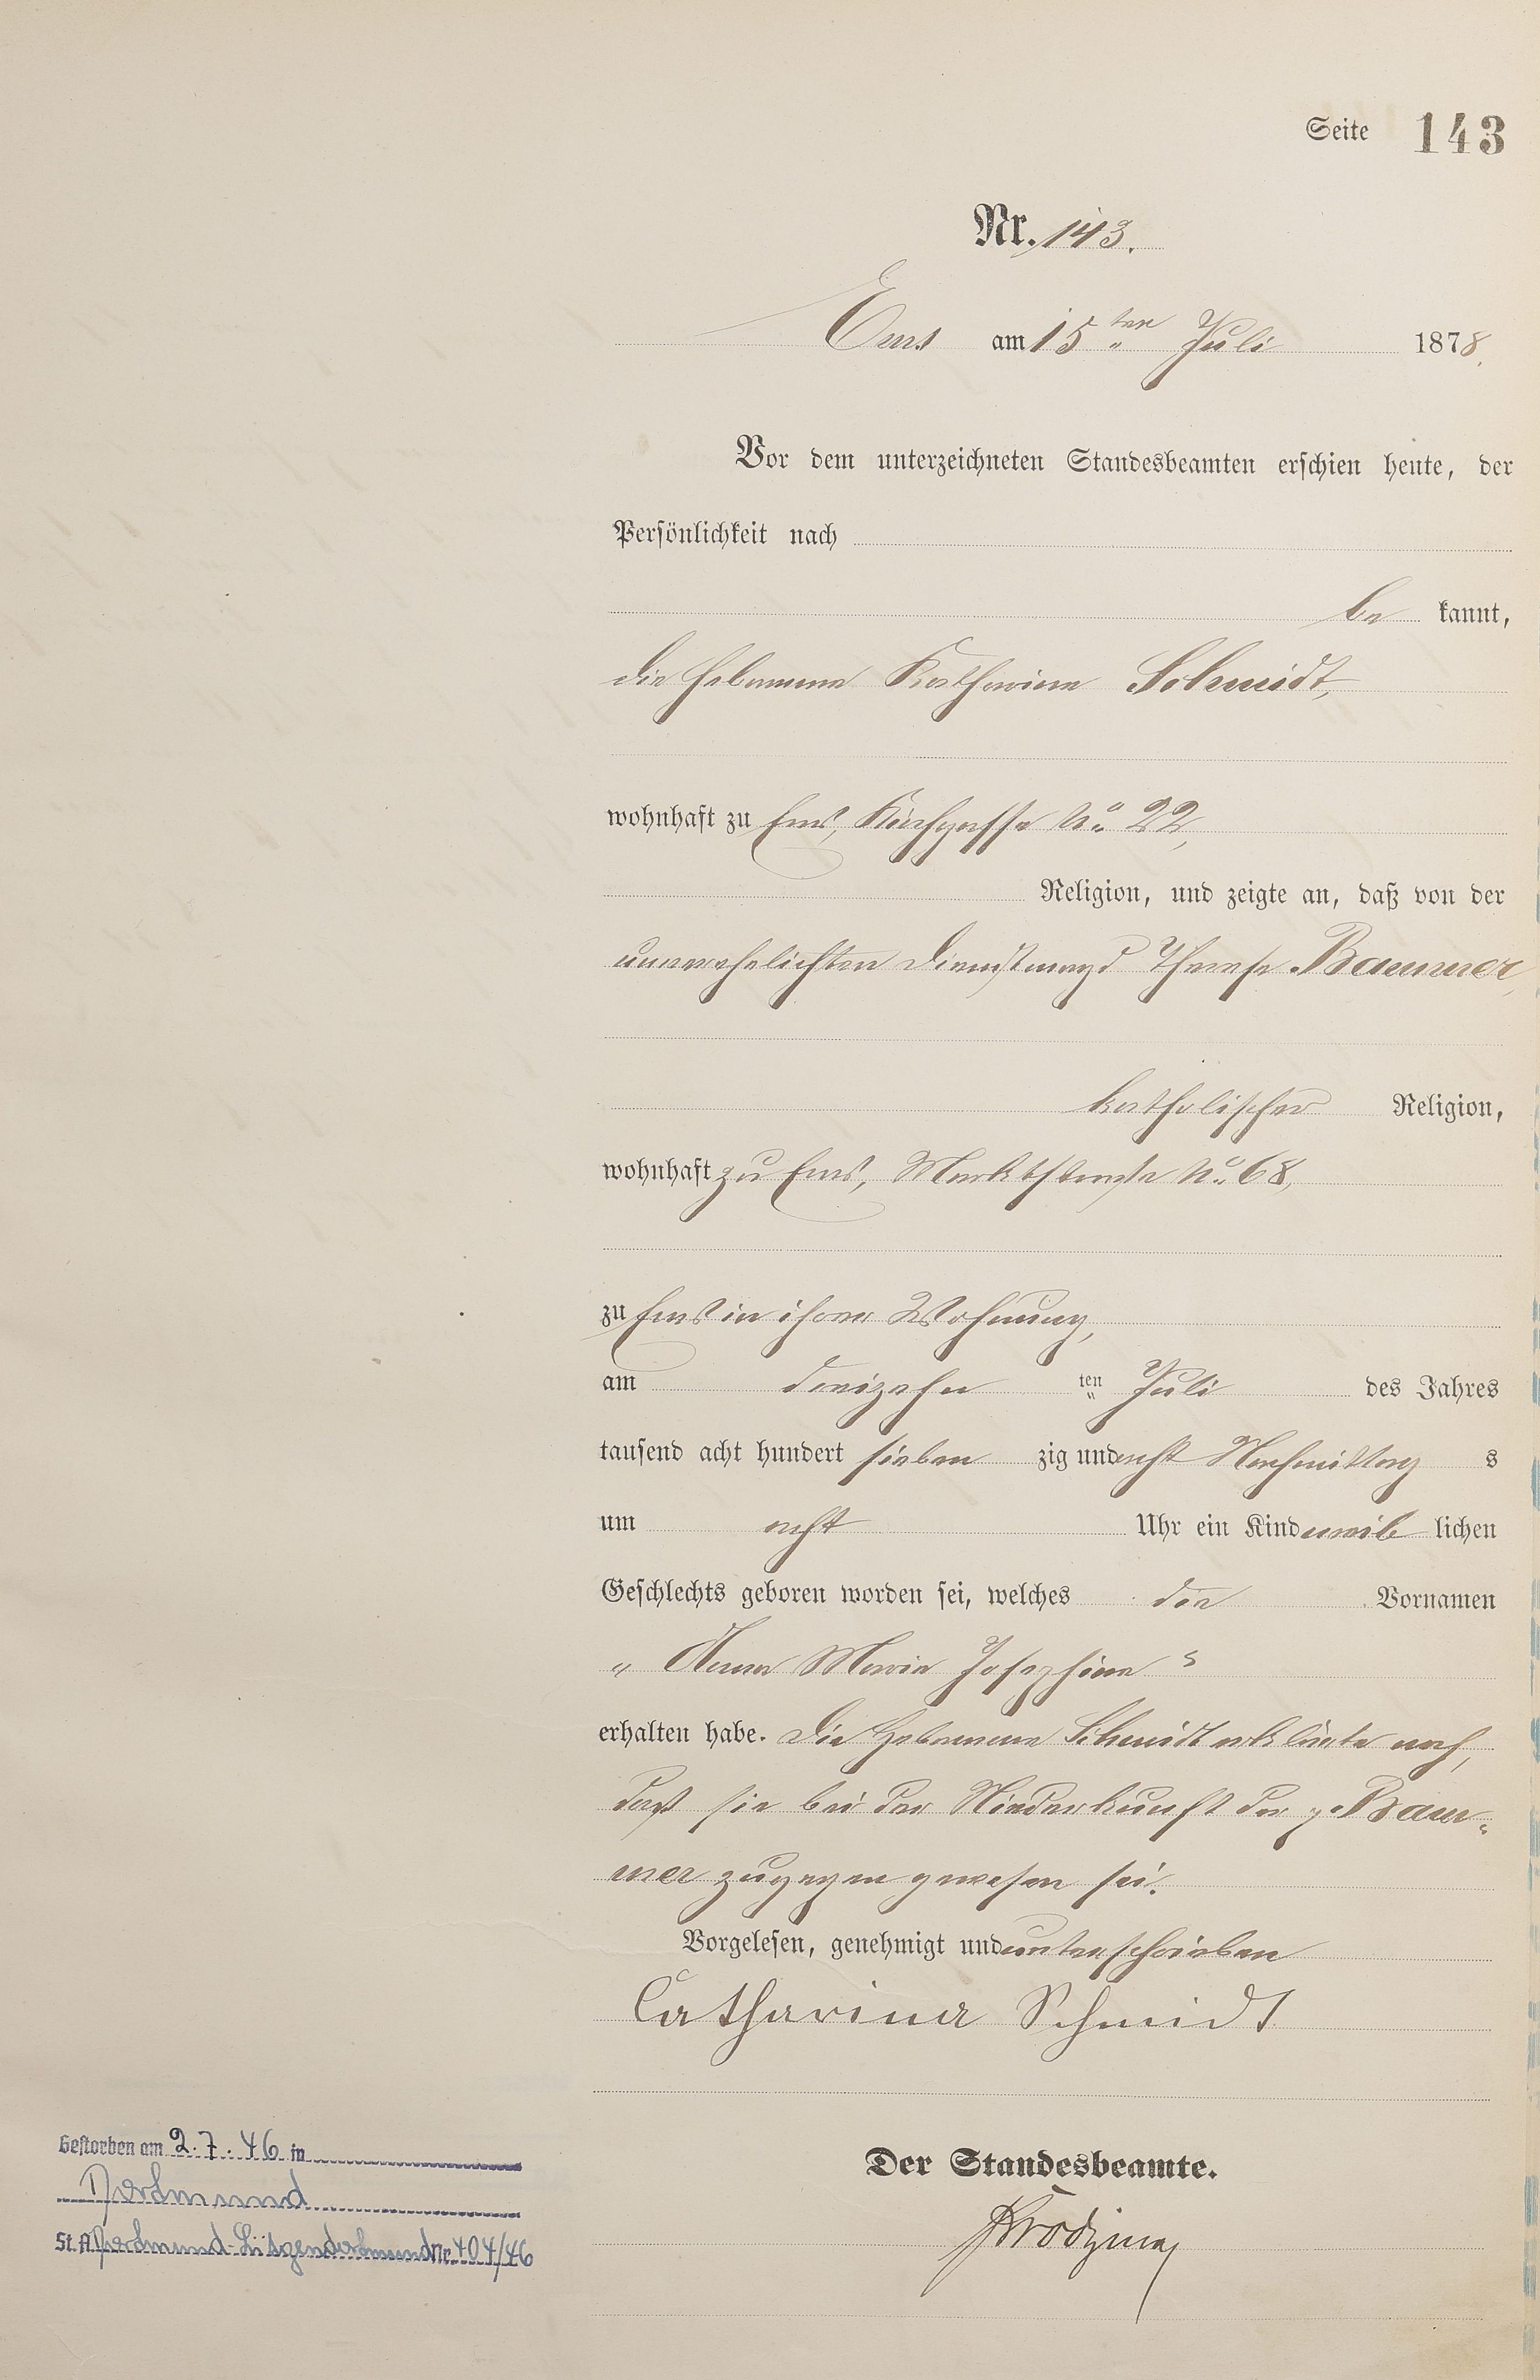 Seite 143
Nr. 143.
Ems am 15ten Juli 1878.
Vor dem unterzeichneten Standesbeamten erschien heute, der
Persönlichkeit nach
be kannt,
die Hebamme Katharina Schmidt,
wohnhaft zu Ems, Kirchgasse No 22,
Religion, und zeigte an, daß von der
unverehelichten Dienstmagd Therese Baumer,
katholischer Religion,
wohnhaft zu Ems, Marktstraße No 68,
zu Ems in ihrer Wohnung,
am dreizehn ten Juli des Jahres
tausend acht hundert sieben zig und acht Nachmittag s
um acht Uhr ein Kind weib lichen
Geschlechts geboren worden sei, welches den Vornamen
„ Anna Maria Josephine “
erhalten habe. Die Hebamme Schmidt erklärte noch,
daß sie bei der Niederkunft der p. Bau-
mer zugegen gewesen sei.
Vorgelesen, genehmigt und unterschrieben
Catharina Schmidt
Der Standesbeamte.
Gestorben am 2.7.46 in
Dortmund
St. A. Dortmund-Lütgendortmund Nr. 404/46